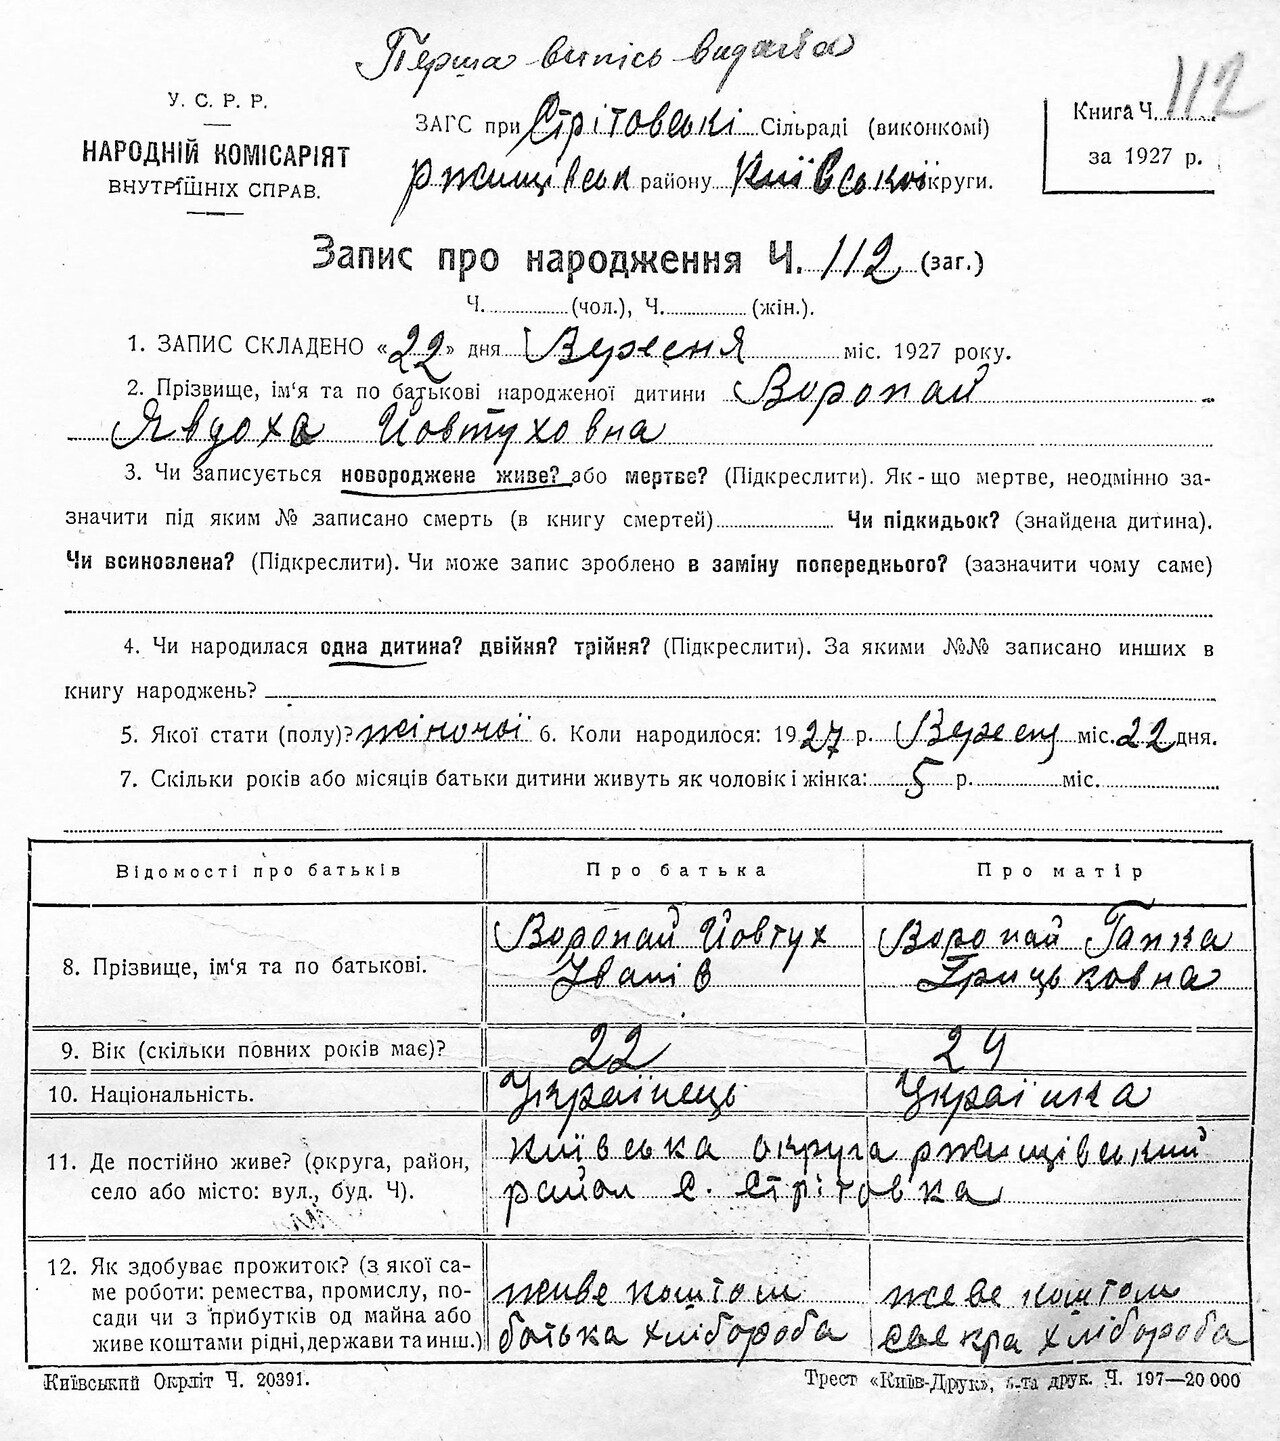 Перша випісь видана
У. С. Р. Р.
НАРОДНІЙ КОМІСАРІЯТ
ВНУТРІШНІХ СПРАВ.
ЗАГС при Стрітовські Сільраді (виконкомі)
ржищівськ району Київської округи.
Книга Ч. 112
за 1927 р.
Запис про народження Ч. 112 (заг.)
Ч. (чол.), Ч. (жін.).
1. ЗАПИС СКЛАДЕНО «22» дня Вересня міс. 1927 року.
2. Прізвище, ім'я та по батькові народженої дитини Воропай
Явдоха Йовтуховна
3. Чи записується новороджене живе? або мертве? (Підкреслити). Як-що мертве, неодмінно за-
значити під яким № записано смерть (в книгу смертей) Чи підкидьок? (знайдена дитина).
Чи всиновлена? (Підкреслити). Чи може запис зроблено в заміну попереднього? (зазначити чому саме)
4. Чи народилася одна дитина? двійня? трійня? (Підкреслити). За якими №№ записано инших в
книгу народжень?
5. Якої стати (полу)? жіночої 6. Коли народилося: 1927 р. Вересня міс. 22 дня.
7. Скільки років або місяців батьки дитини живуть як чоловік і жінка: 5 р. міс.
Відомості про батьків Про батька Про матір
8. Прізвище, ім'я та по батькові. Воропай Йовтух Воропай Гапка
Іванів Грицьковна
9. Вік (скільки повних років має)? 22 24
10. Національність. Українець Українка
11. Де постійно живе? (округа, район, Київська округа ржищівський
село або місто: вул., буд. Ч). район с. Стрітовка
12. Як здобуває прожиток? (з якої са-
ме роботи: ремества, промислу, по- живе коштом живе коштом
сади чи з прибутків од майна або
живе коштами рідні, держави та инш.) батька хлібороба свекра хлібороба
Київський Окрліт Ч. 20391.
Трест «Київ-Друк», друк. Ч. 197—20 000